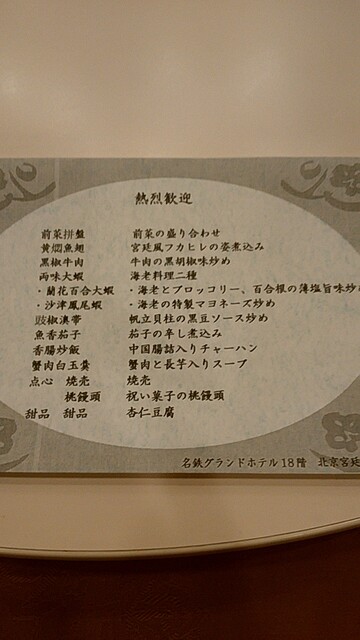 熱烈歓迎
前菜拼盤 前菜の盛り合わせ
黄燜魚翅 宮廷風フカヒレの姿煮込み
黒椒牛肉 牛肉の黒胡椒味炒め
両味大蝦 海老料理二種
・蘭花百合大蝦 ・海老とブロッコリー、百合根の薄塩旨味炒め
・沙津鳳尾蝦 ・海老の特製マヨネーズ炒め
豉椒澳帯 帆立貝柱の黒豆ソース炒め
魚香茄子 茄子の辛し煮込み
香腸炒飯 中国腸詰入りチャーハン
蟹肉白玉羹 蟹肉と長芋入りスープ
点心 焼売 焼売
桃饅頭 祝い菓子の桃饅頭
甜品 甜品 杏仁豆腐
名鉄グランドホテル18階 北京宮廷